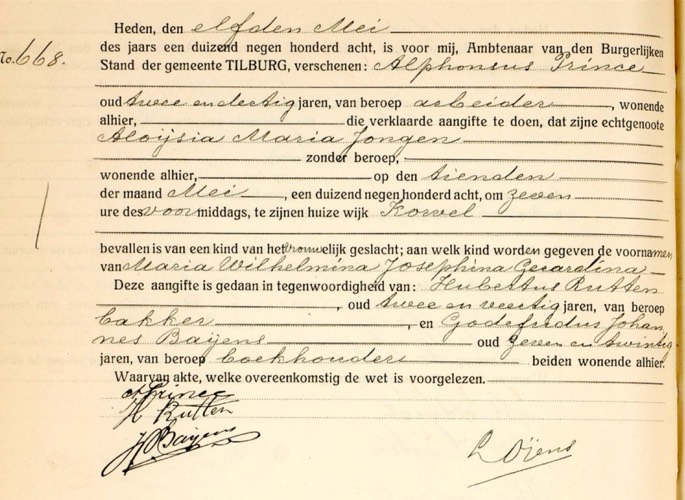 Heden, den elfden Mei
No. 668.
des jaars een duizend negen honderd acht, is voor mij, Ambtenaar van den Burgerlijken
Stand der gemeente TILBURG, verschenen: Alphonsus Prince
oud twee en dertig jaren, van beroep arbeider, wonende
alhier, die verklaarde aangifte te doen, dat zijne echtgenoote
Aloÿsia Maria Jongen
zonder beroep,
wonende alhier, op den tienden
der maand Mei, een duizend negen honderd acht, om zeven
ure des voormiddags, te zijnen huize wijk Korvel
bevallen is van een kind van het vrouwelijk geslacht; aan welk kind worden gegeven de voornamen
van Maria Wilhelmina Josephina Gerardina
Deze aangifte is gedaan in tegenwoordigheid van: Hubertus Rutten
, oud twee en veertig jaren, van beroep
bakker, en Godefridus Johan
nes Baÿens oud zeven en twintig
jaren, van beroep boekhouder beiden wonende alhier.
Waarvan akte, welke overeenkomstig de wet is voorgelezen.
A Prince
H Rutten
Baÿens